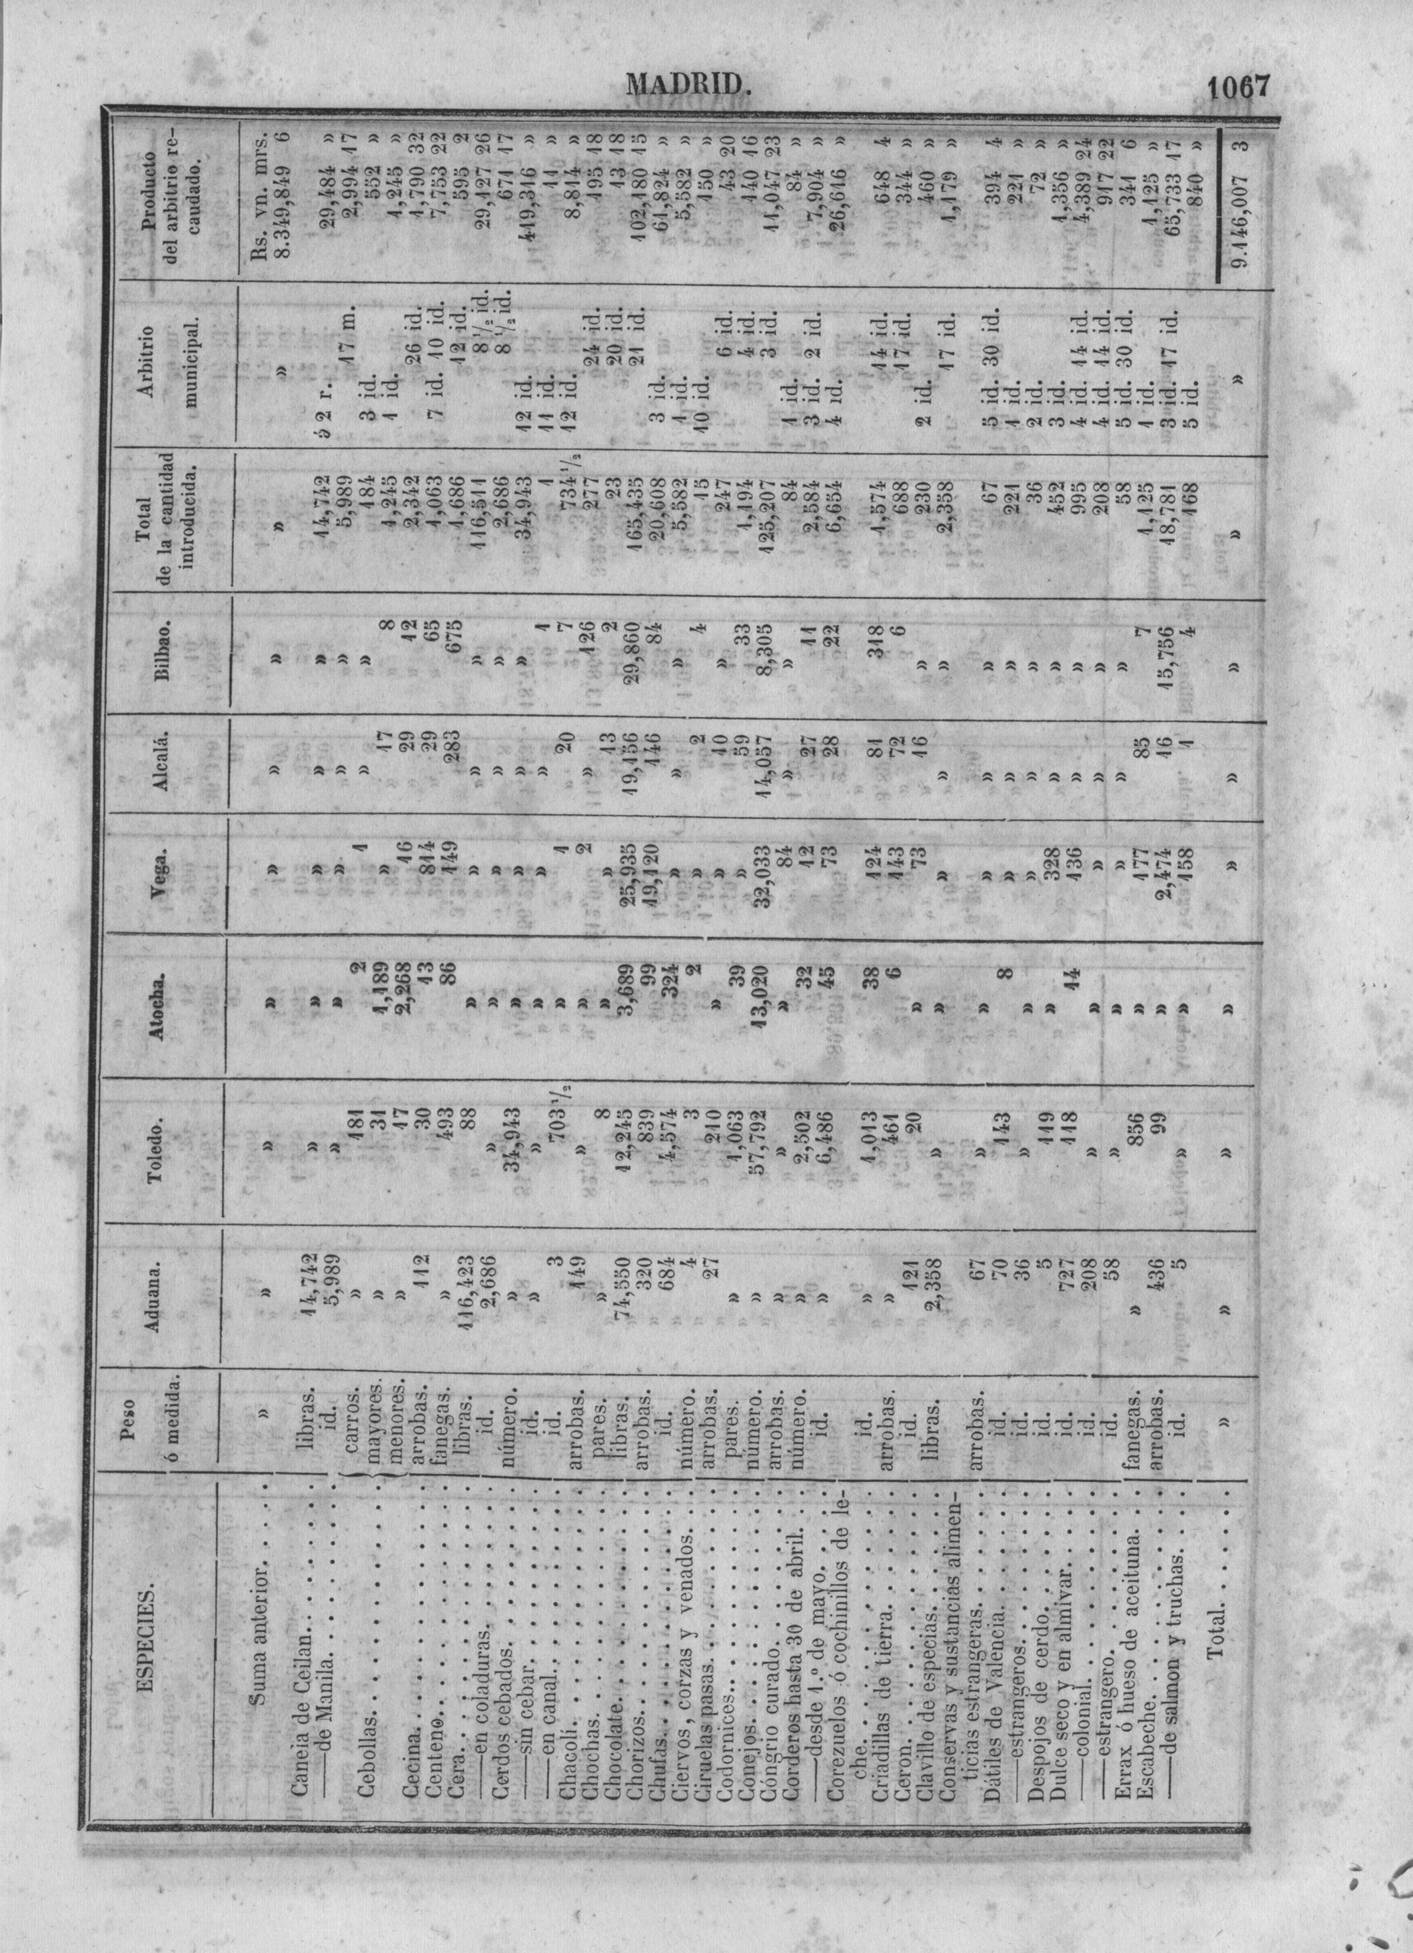 MADRID. 1067
ESPECIES. Peso ó medida. Aduana. Toledo. Atocha. Vega. Alcalá. Bilbao. Total de la cantidad introducida. Arbitrio municipal. Producto del arbitrio recaudado.
Rs. vn. mrs.
Suma anterior. . . . . » » » » » » » » » 8.349,849 6
Caneia de Ceilan. . . . . . . libras. 14,742 » » » » » 14,742 á 2 r. 29,484 »
——de Manila. . . . . . . id. 5,989 » » » » » 5,989 17 m. 2,994 17
Cebollas. . . . . . . . carros. » 181 2 1 » » 184 3 id. 552 »
mayores. » 31 1,189 » 17 8 1,245 1 id. 1,245 »
menores. » 17 2,268 16 29 12 2,342 26 id. 1,790 32
Cecina. . . . . . . . arrobas. 112 30 13 814 29 65 1,063 7 id. 10 id. 7,753 22
Centeno. . . . . . . . fanegas. » 493 86 149 283 675 1,686 12 id. 595 2
Cera. . . . . . . . libras. 116,423 88 » » » » 116,511 8 1/2 id. 29,127 26
——en coladuras. . . . . . id. 2,686 » » » » » 2,686 8 1/2 id. 671 17
Cerdos cebados. . . . . . número. » 34,943 » » » » 34,943 12 id. 419,316 »
——sin cebar. . . . . . . id. » » » » » 1 1 11 id. 11 »
——en canal. . . . . . . id. 3 703 1/2 » 1 20 7 734 1/2 12 id. 8,814 »
Chacolí. . . . . . . . arrobas. 149 » » 2 » 126 277 24 id. 195 18
Chochas. . . . . . . . pares. » 8 » » 13 2 23 20 id. 13 18
Chocolate. . . . . . . . libras. 74,550 12,245 3,689 25,935 19,156 29,860 165,435 21 id. 102,180 15
Chorizos. . . . . . . . arrobas. 320 839 99 19,120 146 84 20,608 3 id. 61,824 »
Chufas. . . . . . . . id. 684 4,574 324 » » » 5,582 1 id. 5,582 »
Ciervos, corzas y venados. . . número. 4 3 2 » 2 4 15 10 id. 150 »
Ciruelas pasas. . . . . . . arrobas. 27 210 » » 10 » 247 6 id. 43 20
Codornices. . . . . . . . pares. » 1,063 39 » 59 33 1,194 4 id. 140 16
Conejos. . . . . . . . número. » 57,792 13,020 32,033 14,057 8,305 125,207 3 id. 11,047 23
Cóngrio curado. . . . . . . arrobas. » » » 84 » » 84 1 id. 84 »
Corderos hasta 30 de abril. . . número. » 2,502 32 12 27 11 2,584 3 id. 2 id. 7,904 »
——desde 1.º de mayo. . . . id. » 6,486 45 73 28 22 6,654 4 id. 26,616 »
Corezuelos ó cochinillos de le-
che. . . . . . . . id. » 1,013 38 124 81 318 1,574 14 id. 648 4
Criadillas de tierra. . . . . . arrobas. » 461 6 143 72 6 688 17 id. 344 »
Ceron. . . . . . . . id. 121 20 » 73 16 » 230 2 id. 460 »
Clavillo de especias. . . . . . libras. 2,358 » » » » » 2,358 17 id. 1,179 »
Conservas y sustancias alimen-
ticias estrangeras. . . . . . arrobas. 67 » » » » » 67 5 id. 30 id. 394 4
Dátiles de Valencia. . . . . . id. 70 143 8 » » » 221 1 id. 221 »
——estrangeros. . . . . . id. 36 » » » » » 36 2 id. 72 »
Despojos de cerdo. . . . . . id. 5 119 » 328 » » 452 3 id. 1,356 »
Dulce seco y en almivar. . . . id. 727 118 14 136 » » 995 4 id. 14 id. 4,389 24
——colonial. . . . . . . id. 208 » » » » » 208 4 id. 14 id. 917 22
——estrangero. . . . . . id. 58 » » » » » 58 5 id. 30 id. 341 6
Errax ó hueso de aceituna. . . fanegas. » 856 » 177 85 7 1,125 1 id. 1,125 »
Escabeche. . . . . . . . arrobas. 436 99 » 2,474 16 15,756 18,781 3 id. 17 id. 65,733 17
——de salmon y truchas. . . . id. 5 » » 158 1 4 168 5 id. 840 »
Total. . . . . . » » » » » » » » » 9.146,007 3